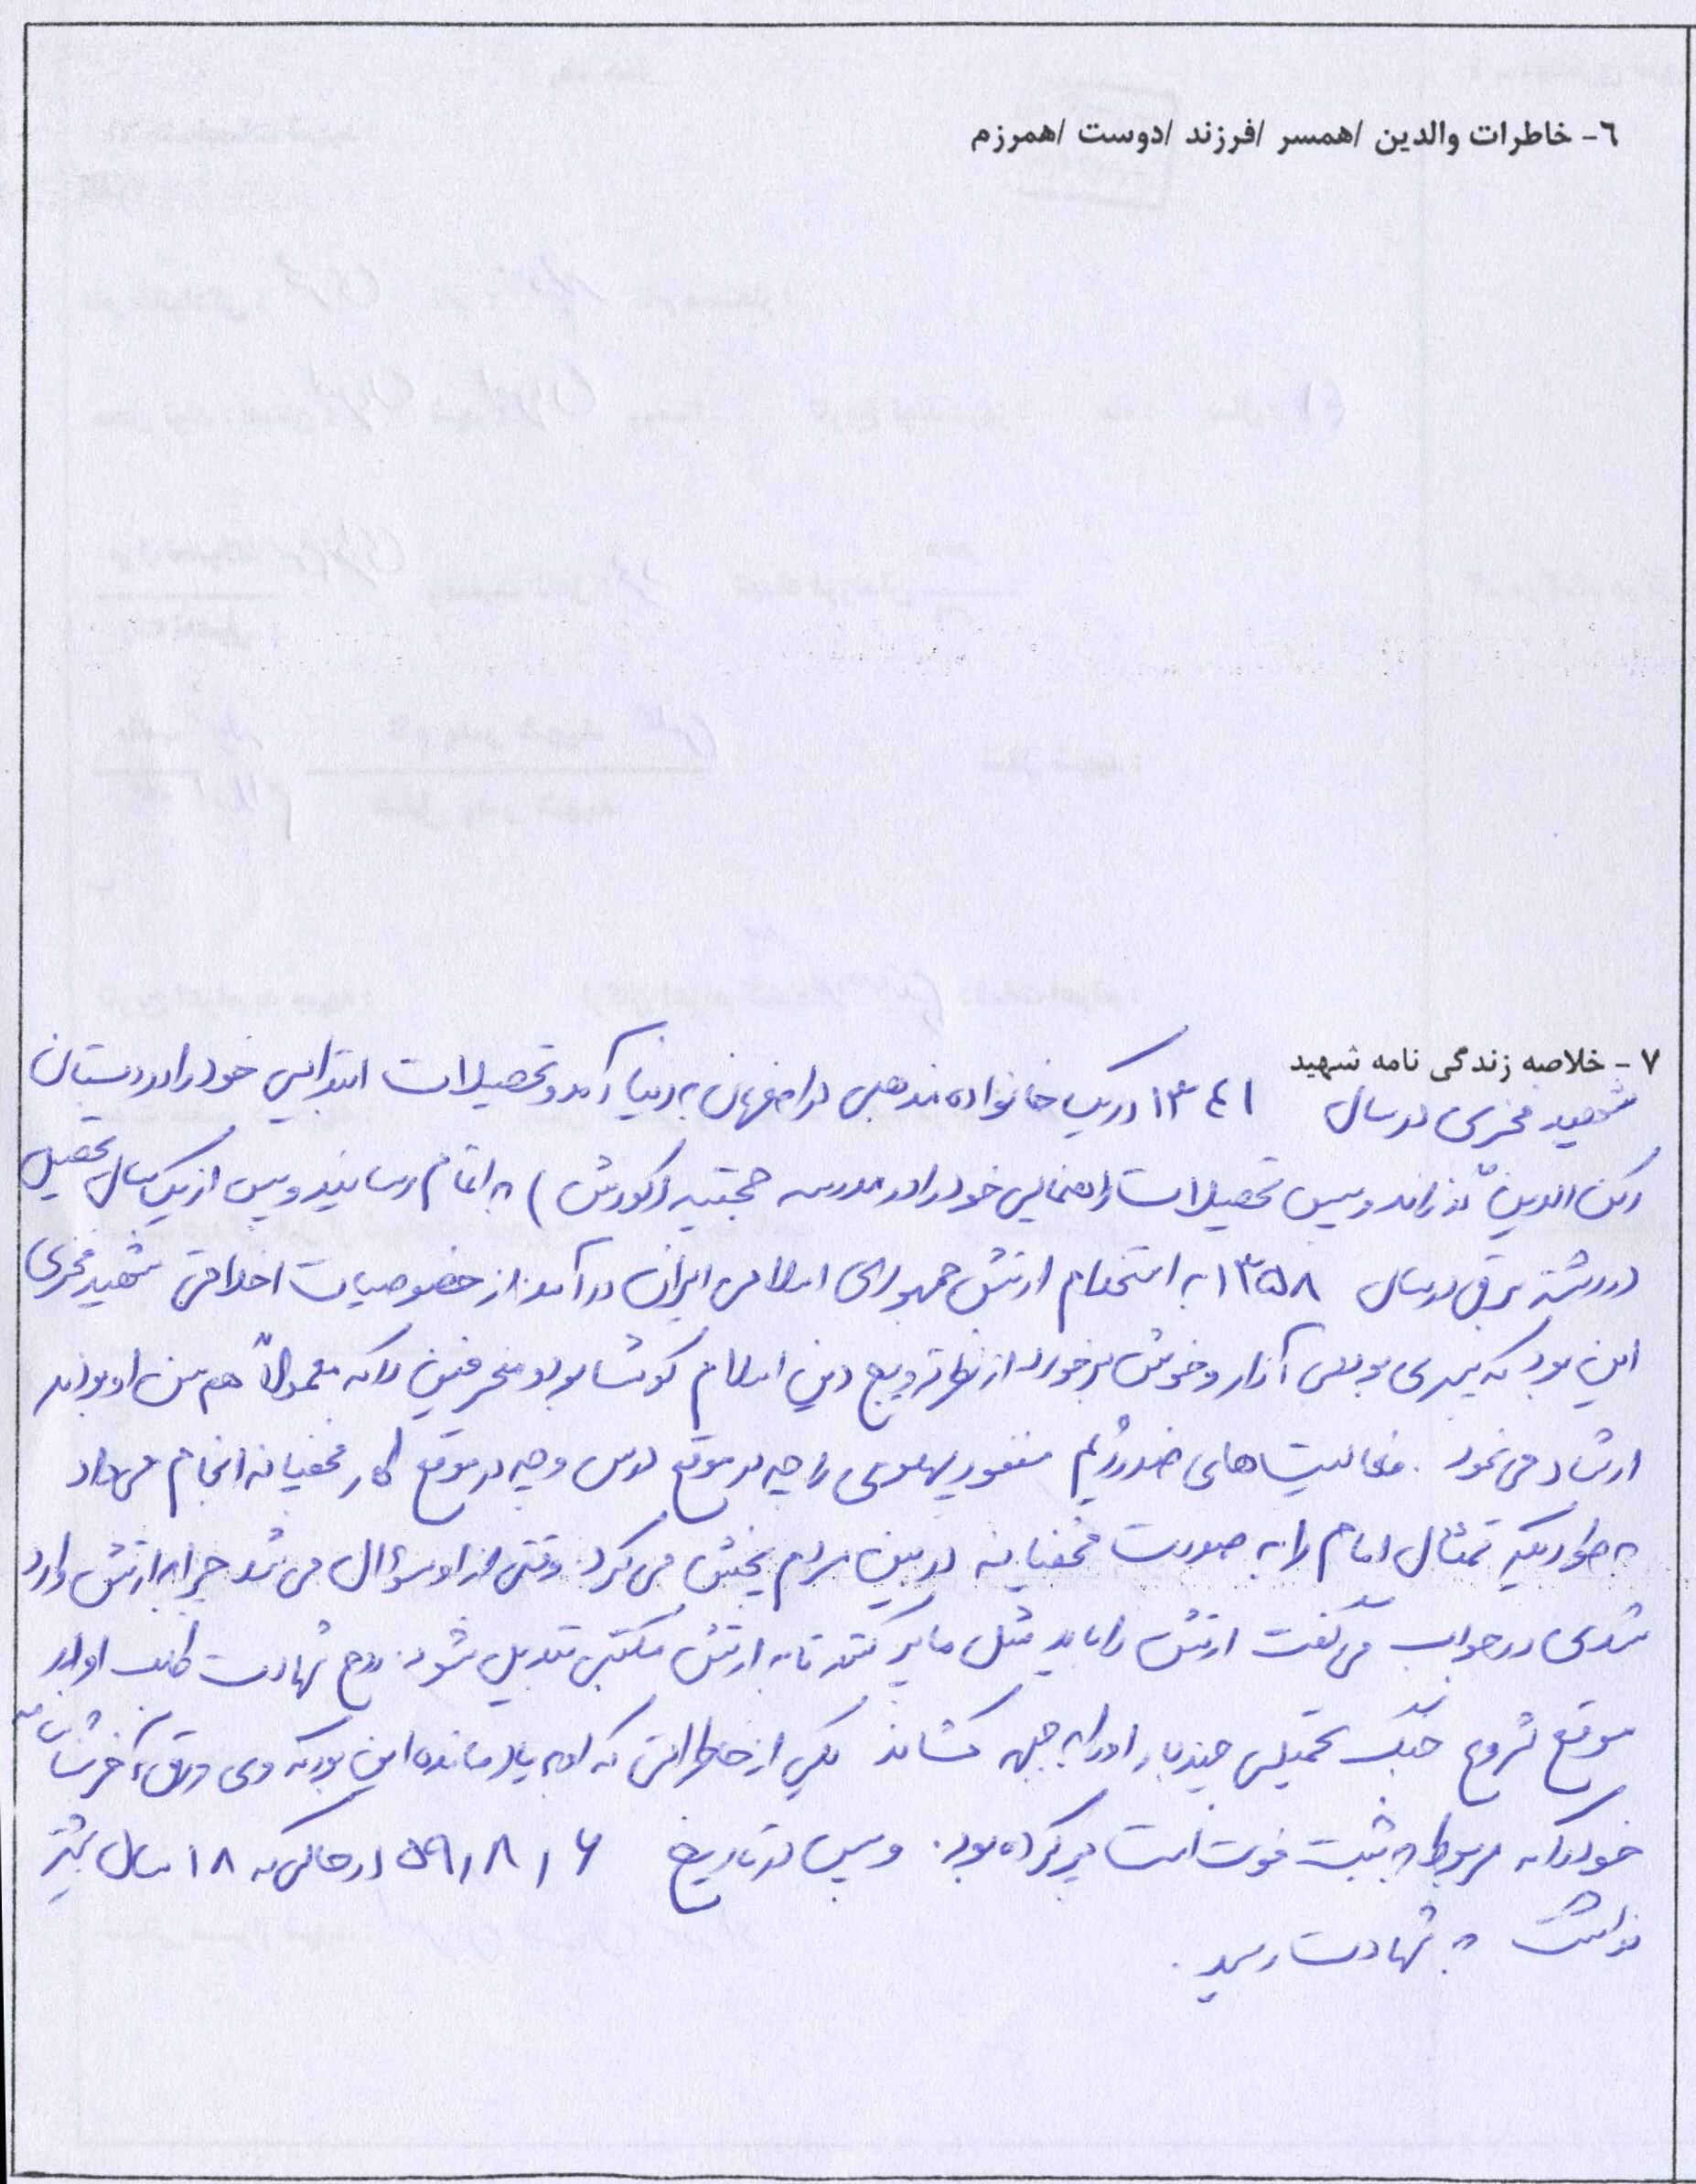 ٦- خاطرات والدین /همسر /فرزند /دوست /همرزم
٧ - خلاصه زندگی نامه شهید
شهید فخری در سال ۱۳٤۱ در یک خانواده مذهبی در اصفهان به دنیا آمد و تحصیلات ابتدایی خود را در دبستان
رکن الدین گذراند و سپس تحصیلات راهنمایی خود را در مدرسه حجتیه (کورش) به اتمام رسانید و پس از یک سال تحصیل
در رشته برق در سال ۱۳۵۸ به استخدام ارتش جمهوری اسلامی ایران درآمد. از خصوصیات اخلاقی شهید فخری
این بود که پسری بود بی آزار و خوش برخورد از نظر ترویج دین اسلام کوشا بود و منحرفین را که معمولاً هم سن او بودند
ارشاد می نمود. فعالیت های ضد رژیم منفور پهلوی را چه در موقع درس و چه در موقع کار مخفیانه انجام می داد
به طوریکه تمثال امام را به صورت مخفیانه در بین مردم پخش می کرد. وقتی از او سؤال می شد چرا به ارتش وارد
شدی در جواب می گفت ارتش را باید مثل ما پر کنند تا به ارتش مکتبی تبدیل شود. روح شهادت طلب او در
موقع شروع جنگ تحمیلی چند بار او را به جبهه کشاند یکی از خاطراتی که از او به یاد مانده این بود که وی ورقه آخر شناسنامه
خود را که مربوط به ثبت فوت است پر کرده بود. و سپس در تاریخ ۵۹/۸/۶ در حالی که ۱۸ سال بیشتر
نداشت به شهادت رسید.